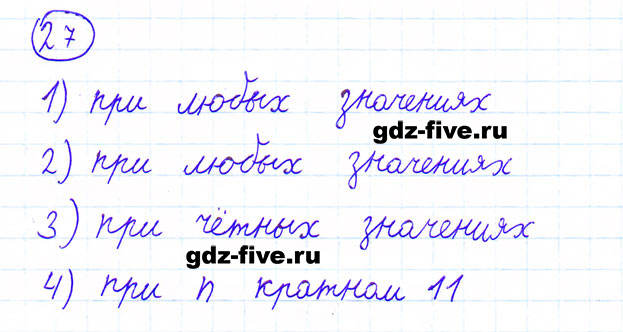 27
1) при любых значениях
gdz-five.ru
2) при любых значениях
3) при чётных значениях
gdz-five.ru
4) при n кратном 11